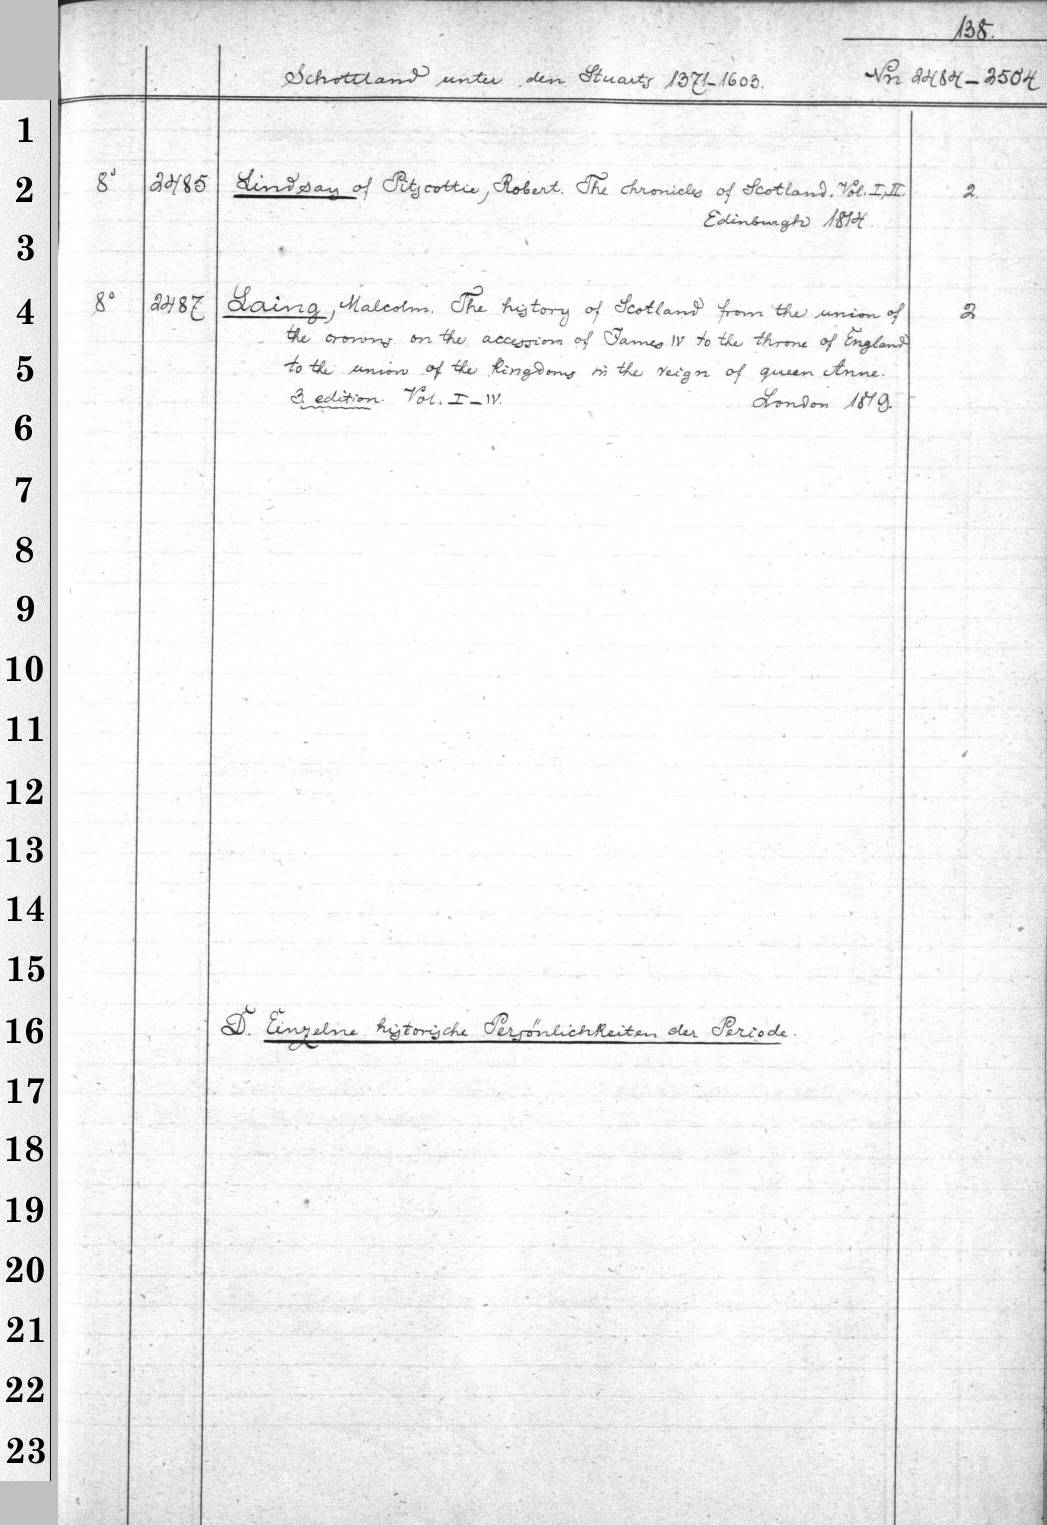 138.
Schottland unter den Stuarts 1371-1603. Nn 2484-2504
1
2 8° 2485 Lindsay of Pitscottie, Robert. The chronicles of Scotland. Vol. I, II. 2
Edinburgh 1814.
3
4 8° 2487 Laing, Malcolm. The history of Scotland from the union of 2
the crowns on the accession of James IV to the throne of England
5 to the union of the kingdoms in the reign of queen Anne.
3 edition. Vol. I-IV. London 1819.
6
7
8
9
10
11
12
13
14
15
16 D. Einzelne historische Persönlichkeiten der Periode.
17
18
19
20
21
22
23